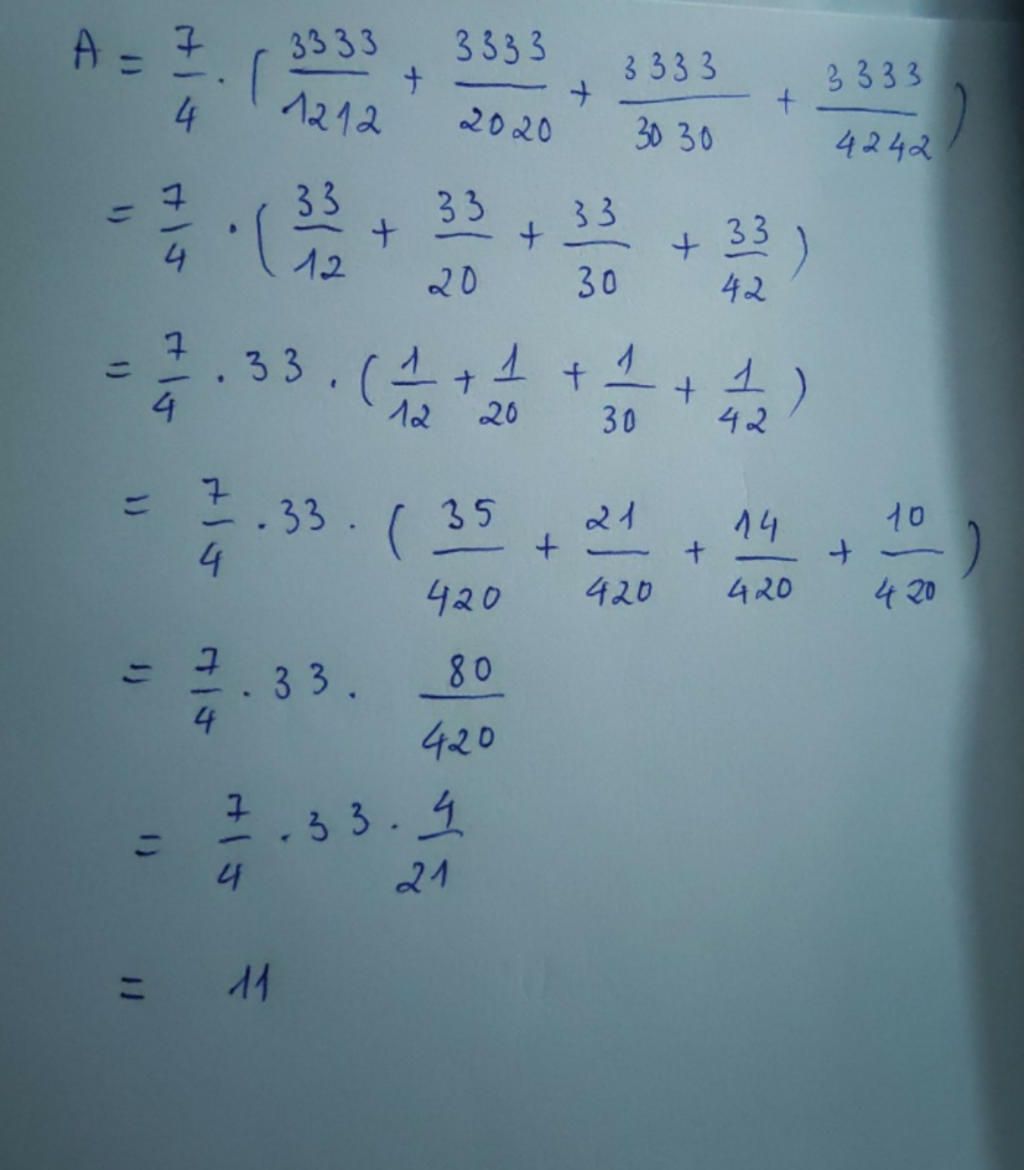 A = 7/4 . ( 3333/1212 + 3333/2020 + 3333/3030 + 3333/4242 )
= 7/4 . ( 33/12 + 33/20 + 33/30 + 33/42 )
= 7/4 . 33 . ( 1/12 + 1/20 + 1/30 + 1/42 )
= 7/4 . 33 . ( 35/420 + 21/420 + 14/420 + 10/420 )
= 7/4 . 33 . 80/420
= 7/4 . 33 . 4/21
= 11